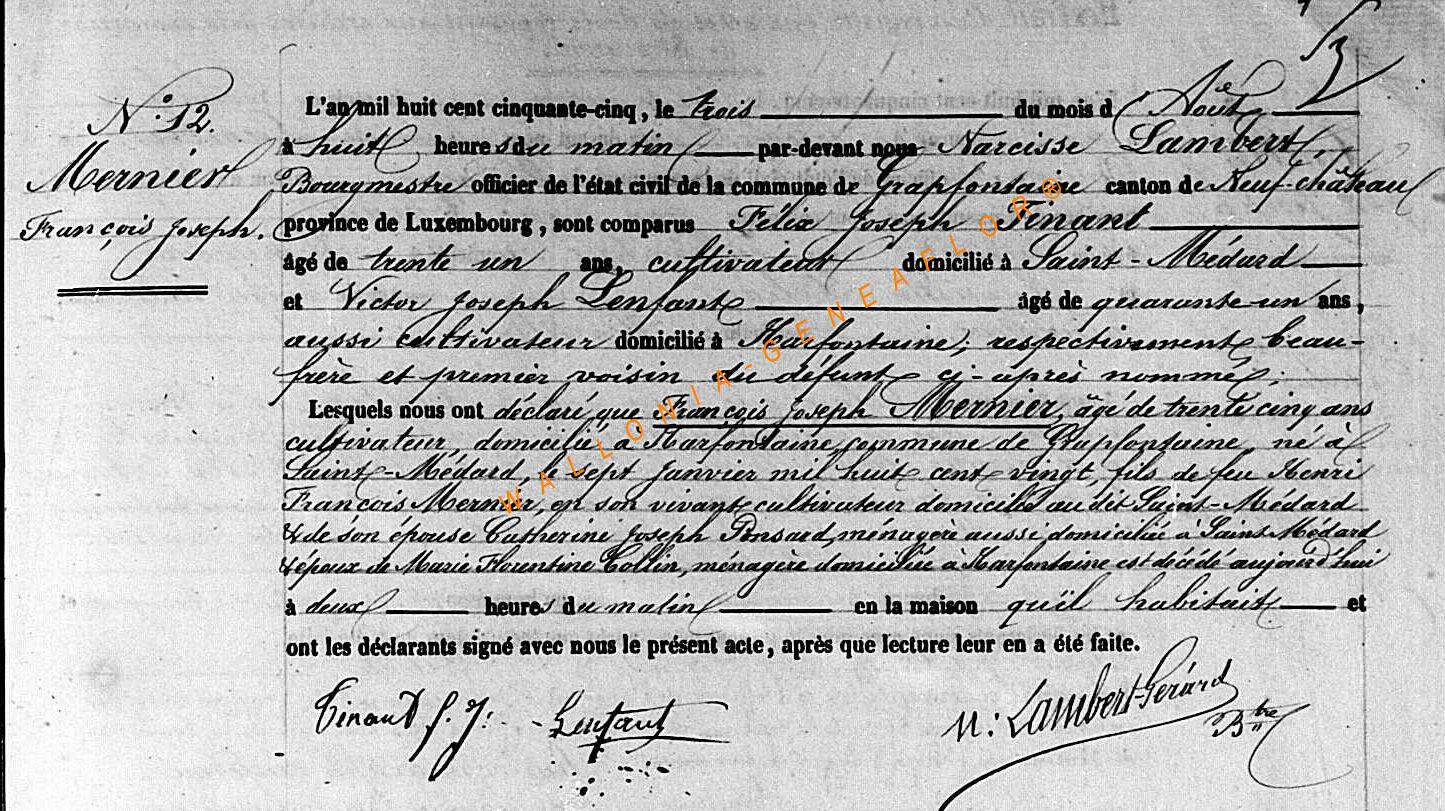 3
N° 12.
Mernier
François Joseph.
L'an mil huit cent cinquante-cinq, le trois du mois d'Août
à huit heures du matin par-devant nous Narcisse Lambert,
Bourgmestre officier de l'état civil de la commune de Grapfontaine canton de Neuf-château
province de Luxembourg, sont comparus Félix Joseph Tinant
âgé de trente un ans, cultivateur domicilié à Saint-Médard
et Victor Joseph Lenfant âgé de quarante un ans,
aussi cultivateur domicilié à Harfontaine; respectivement beau-
frère et premier voisin du défunt ci-après nommé;
Lesquels nous ont déclaré que François Joseph Mernier, âgé de trente cinq ans
cultivateur, domicilié à Harfontaine, commune de Grapfontaine, né à
Saint-Médard, le sept Janvier mil huit cent vingt, fils de feu Henri
François Mernier, en son vivant cultivateur domicilié au dit Saint-Médard
& de son épouse Catherine Joseph Ponsard, ménagère aussi domiciliée à Saint Médard
& époux de Marie Florentine Collin, ménagère domiciliée à Harfontaine est décédé aujourd'hui
à deux heures du matin en la maison qu'il habitait et
ont les déclarants signé avec nous le présent acte, après que lecture leur en a été faite.
Tinant f. J. Lenfant N: Lambert-Gérard
Btre
WALLONIA-GENEAFLOR®